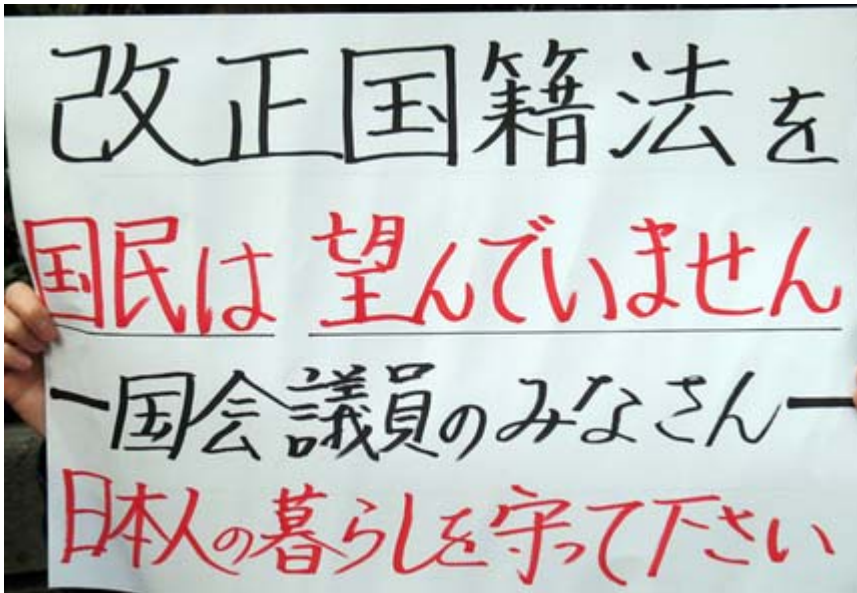 改正国籍法を
国民は 望んでいません
ー国会議員のみなさんー
日本人の暮らしを守って下さい